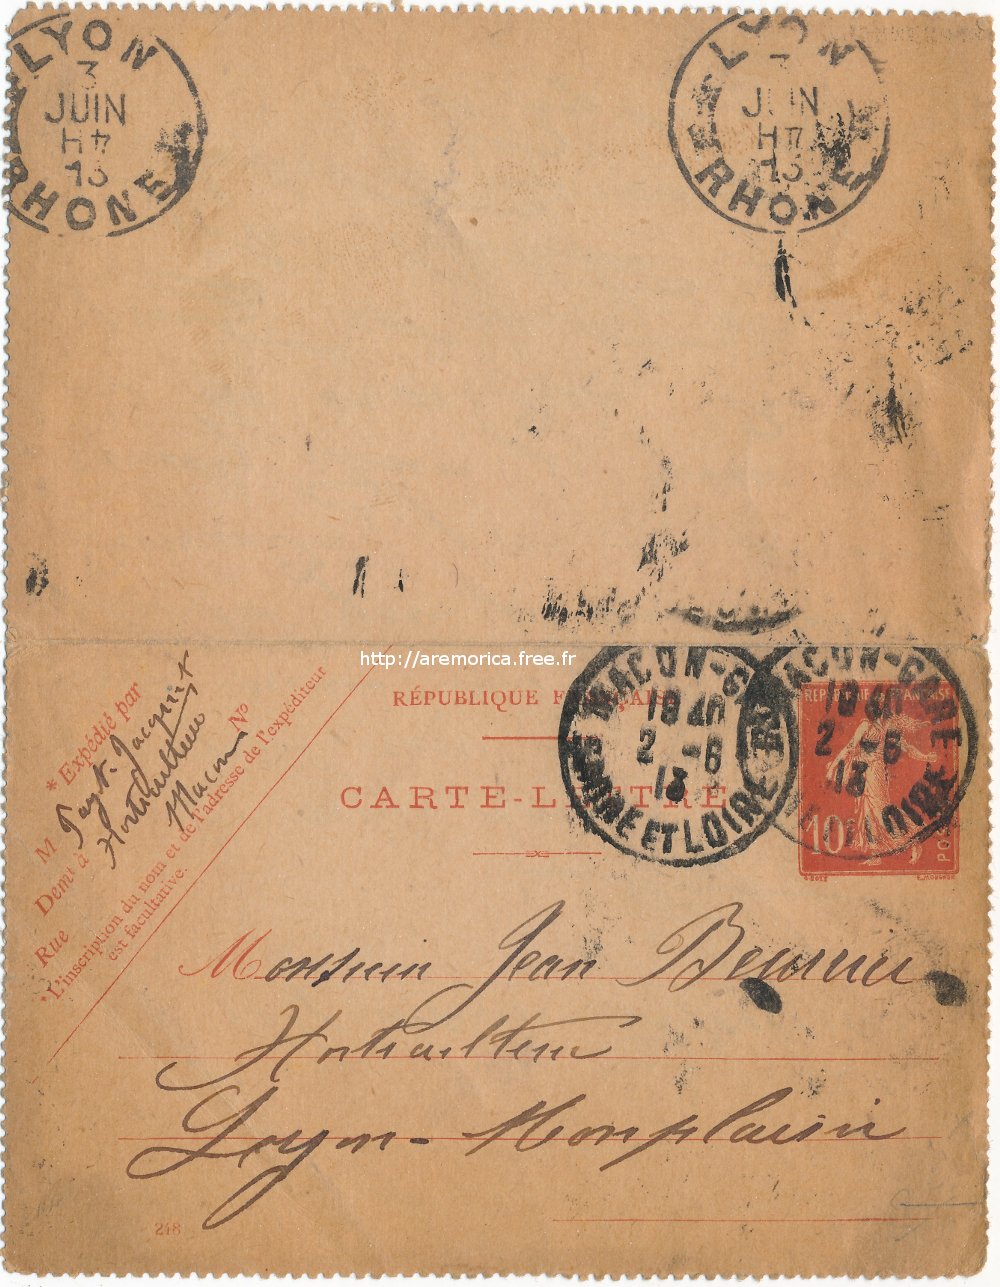 LYON
3
JUIN
4H
13
RHONE
LYON
3
JUIN
4H
13
RHONE
http://aremorica.free.fr
* Expédié par
M Jacquet
Demt à Horticulteur
Rue Macon N°
*L'inscription du nom et de l'adresse de l'expéditeur
est facultative.
RÉPUBLIQUE FRANÇAISE
CARTE-LETTRE
MACON-GARE
18 40
2 -6
13
SAONE ET LOIRE
MACON-GARE
18 40
2 -6
13
ET LOIRE
REPUBLIQUE FRANÇAISE
10
POSTES
Monsieur Jean Beurrier
Horticulteur
Lyon-Monplaisir
248